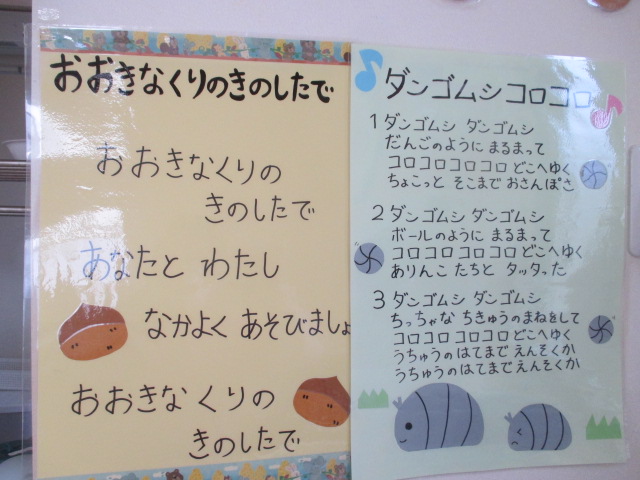 おおきなくりのきのしたで
おおきなくりの
きのしたで
あなたと わたし
なかよく あそびましょ
おおきな くりの
きのしたで
ダンゴムシコロコロ
1 ダンゴムシ ダンゴムシ
だんごのように まるまって
コロコロコロコロ どこへゆく
ちょこっと そこまで おさんぽさ
2 ダンゴムシ ダンゴムシ
ボールのように まるまって
コロコロ コロコロ どこへゆく
ありんこ たちと タッタった
3 ダンゴムシ ダンゴムシ
ちっちゃな ちきゅうのまねをして
コロコロ コロコロ どこへゆく
うちゅうの はてまで えんそくか
うちゅうの はてまで えんそくか